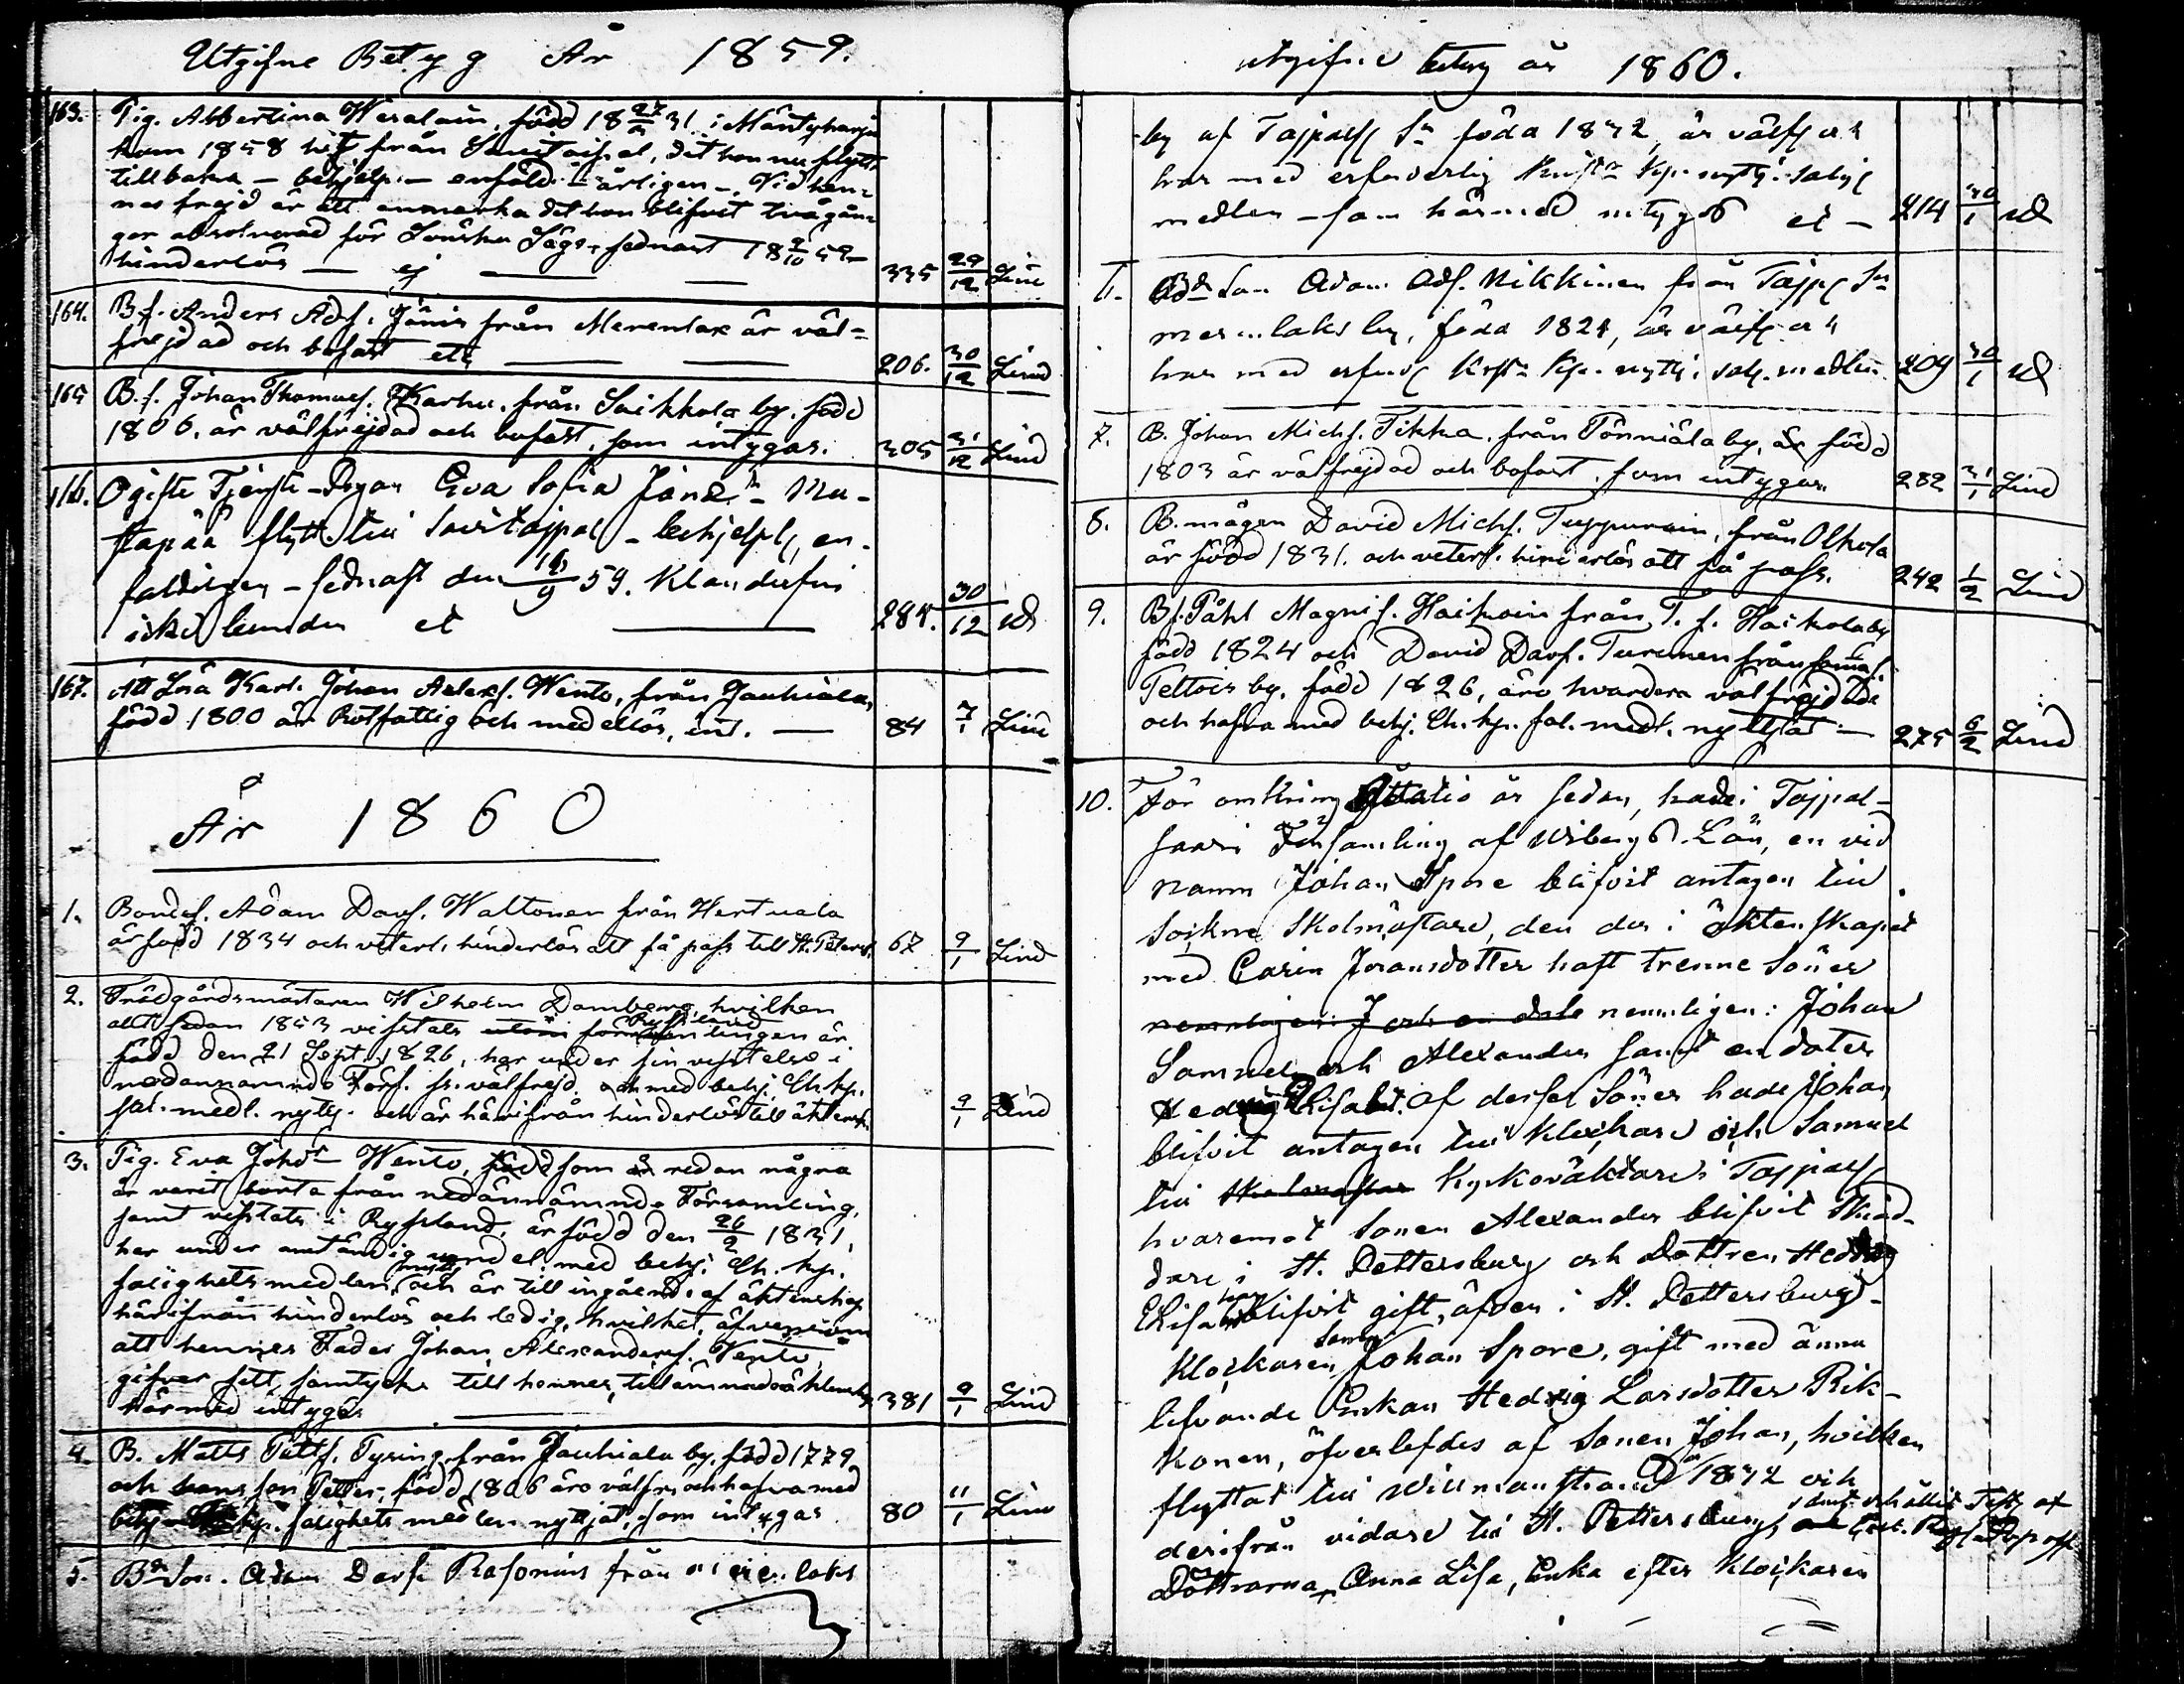 Utgifne Betyg År 1859.
163. Pig. Albertina Weralain, född 18 27/3 31 i Mäntyharju
kom 1858 hit från Savitaipal, dit hon nu flytt.
tillbaka – behjelp. – enfäld. – ärligen – Vid hen-
nes frejd är att anmärka det hon blifvit två gån-
ger absolverad för Lönska Läge, sednast 18 9/10 59 –
hinderlös — ej — 335 29/12 Lind
164. B.f. Anders Adf. Jänis från Merenlax är väl-
frejdad och bofast etc — 206. 30/12 Lind
165 B.f. Johan Thomasf. Karhu, från Saikkola by, född
1806, är välfrejdad och bofast, som intygas. 305 31/12 Lind
166. Ogifte Tjenste-Pigan Eva Sofia – Mu-
stapää flytt. till Savitajpal – behjelpl, en-
faldigen – sednast den 18/9 59. Klanderfri
icke bunden et — 284. 30/12
167. Att Inh. Karl. Johan Alexf. Wento, från Jauhiala,
född 1800 är Rotfattig och medellös, int. — 84 7/1 Lind
År 1860
1. Bondes. Adam Davf. Waltonen från Hertuala
är född 1834 och veterl. hinderlös att få pass till St. Petersb. 67 9/1 Lind
2. Trädgårdsmästaren Wilhelm Damberg, hvilken
allt sedan 1853 vistats utom församlingen är
Ryssland
född den 21 Sept. 1826, har under sin vistelse i
nedannämnde Förs. fr. välfrejd. och med behj. Ch. kp.
sal. medl. nyttj. och är härifrån hinderlös till äktensk. 9/1 Lind
3. Pig. Eva Johd:r Wento, född som är redan några
år varit borta från nedannämnde Församling,
samt vistats i Ryssland, är född den 26/2 1831,
har under anständig vandel med behj. Ch. kp.
salighets medlen nyttj. och är till ingående af äktenskap
härifrån hinderlös och ledig, hvilket, äfvensom
att hennes Fader Johan Alexandersf. Vento,
gifver sitt samtycke till hennes tillämnade äktenskap
härmed intygas — 381 9/1 Lind
4. B. Matts Pettf. Tyring från Jauhiala by, född 1779
och hans son Petter, född 1806 äro välfr. och hafva med
behj. kp. salighets medlen nyttjat, som intygas 80 11/1 Lind
5. Bd Son. Adam Davf. Rasonius från laks
utgifne betyg år 1860.
by af Tajpalf Sn föda 1832, är välfr och
har med erfoderlig Krist. Kp. nyttj. salig
medlen – som härmed intygas et – 214 30/1
6. Bd Son Adam Adf. Nikkinen från Tajp Sn
laks by, föda 1824, är välfr och
har med erford Krist. Kp. nyttj. salg. medlen 209 30/1
7. B. Johan Michf. Tikka, från Pönniälä by, är född
1803 är välfrejdad och bofast, som intygas. 282 31/1 Lind
8. B. mågen David Michf. Tuppurain, från Olkola
är född 1831. och veterl. hinderlös att få pass. 242 1/2 Lind
9. B.f. Påhl Magnif. Haikoin från T. f. Haikola by
född 1824 och David Davf. Turunen från samma f.
Tettois by, född 1826, äro hvardera välfrejdade
och hafva med behj. Ch. kp. sal. medl. nyttjat – 275 6/2 Lind
10. För omkring Åttatio år sedan, hade i Tajpal-
saari Församling af Wiborgs Län, en vid
namn Johan Spore blifvit antagen till
Sockne Skolmästare, den der i äktenskapet
med Carin Joransdotter haft trenne Söner
nemnligen: J och en dot nemnligen: Johan
Samuel och Alexander samt en doter
Hedvig Elisabet. Af desse Söner hade Johan
blifvit antagen till Klockare och Samuel
till Skolmästare Kyrkoväktare i Tajpalf
hvaremot Sonen Alexander blifvit Skräd-
dare i St. Pettersburg och Dottren Hedvig
Elisa blifvit gift, äfven i St. Pettersburg –
Klockaren Johan Spore, gift med ännu
lefvande Enkan Hedvig Larsdotter Rik-
konen, öfverlefdes af Sonen Johan, hvilken
flyttat till Willmanstrand 1832 och
derifrån vidare till St. Pettersburg,
Döttrarna Anna Lisa, Enka efter Klockaren